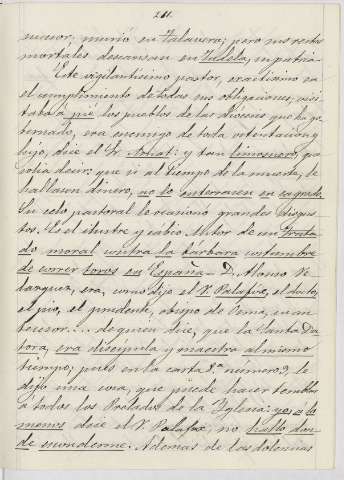 211.
menor: murió en Talavera; pero sus restos
mortales descansan en Tudela, su patria.
Este vigilantísimo pastor, exactísimo en
el cumplimiento de todas sus obligaciones, visi-
taba á pié los pueblos de las diócesis que ha go-
bernado, era enemigo de toda ostentacion y
lujo, dice el Sr. Amat: y tan limosnero, que
solia decir: que si al tiempo de la muerte, le
hallasen dinero, no lo enterrasen en sagrado.
Su celo pastoral le ocasionó grandes disgus-
tos. Es el ilustre y sabio Autor de un Trata-
do moral contra la bárbara costumbre
de correr toros en España = D. Alonso Ve-
lazquez, era, como dijo el V. Palafox, el docto,
el pio, el prudente, obispo de Osma, su an-
tecesor.... de quien dice, que la Santa Doc-
tora, era discípula y maestra al mismo
tiempo; pues en la carta 8ª número 9, le
dijo una cosa, que puede hacer temblar
á todos los Prelados de la Yglesia: yo, á lo
menos dice el V. Palafox, no hallo don-
de esconderme. Ademas de los dolorosos